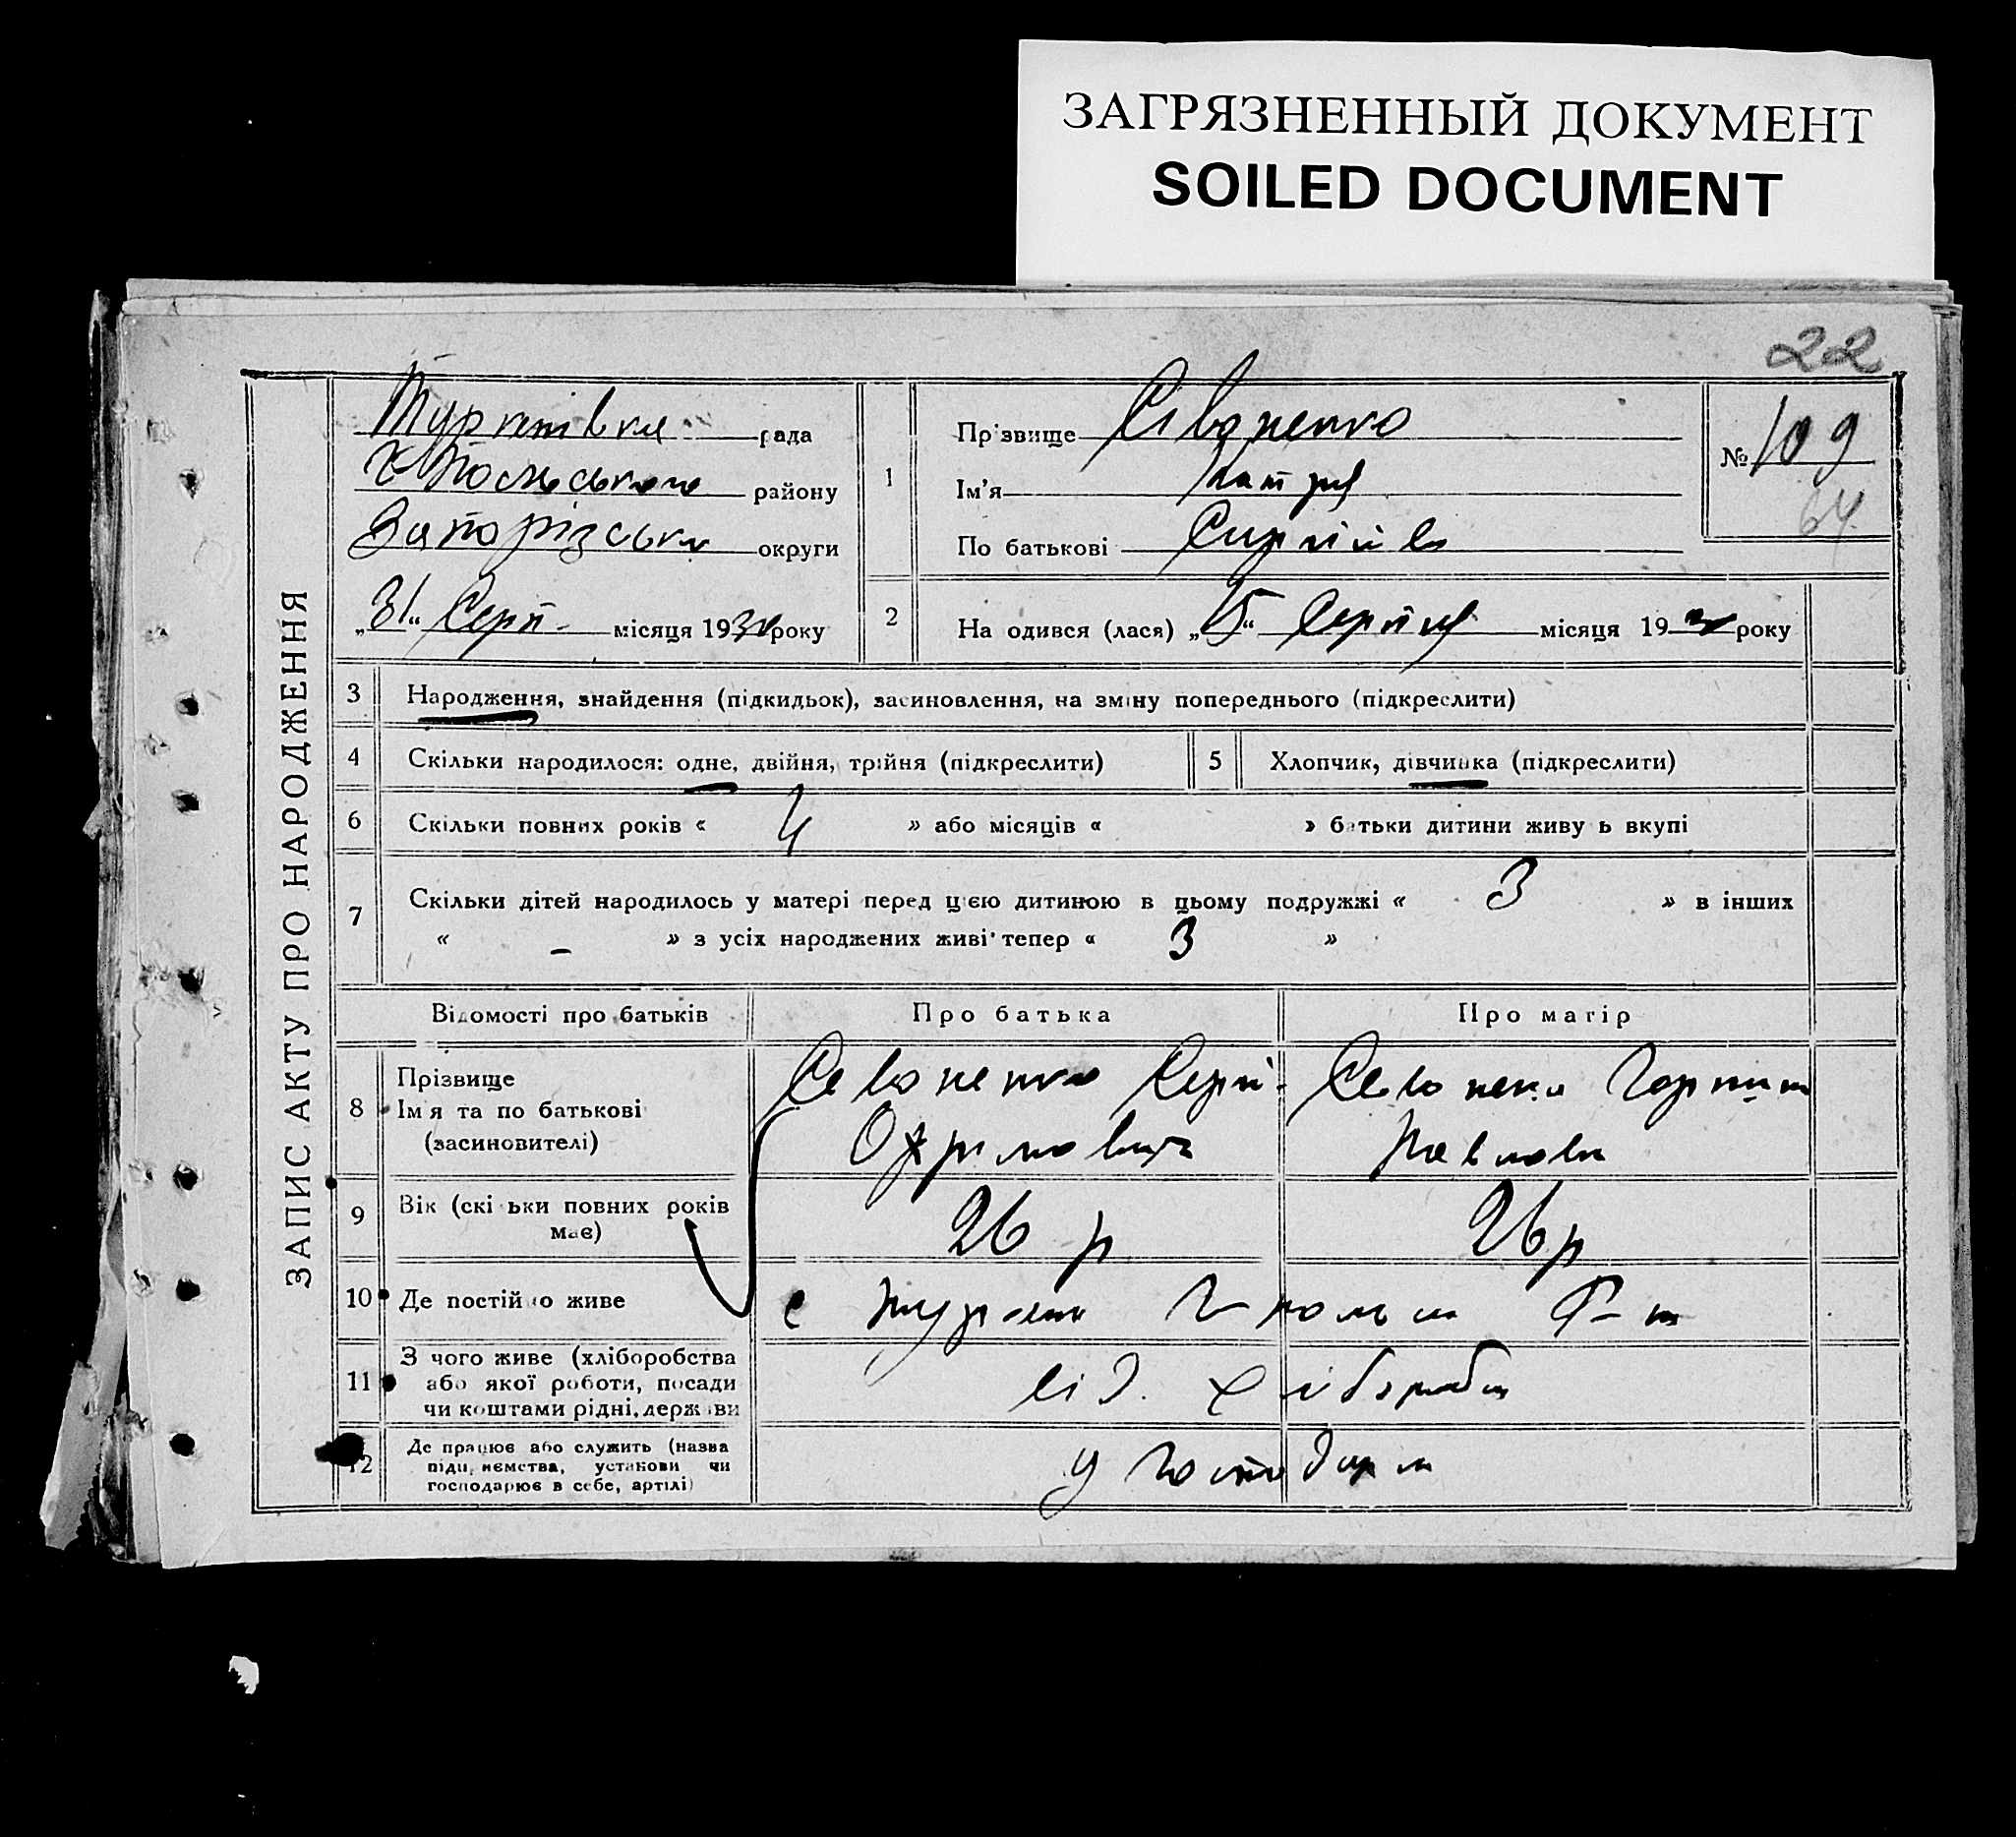 ЗАГРЯЗНЕННЫЙ ДОКУМЕНТ
SOILED DOCUMENT
22
ЗАПИС АКТУ ПРО НАРОДЖЕННЯ
рада
району
округи
„31“ Серп- місяця 1930 року
1
Прізвище Сівоненко
Ім'я Катря
По батькові
№ 109
64
2 На одився (лася) „15“ Серпня місяця 1930 року
3 Народження, знайдення (підкидьок), засиновлення, на зміну попереднього (підкреслити)
4 Скільки народилося: одне, двійня, трійня (підкреслити)
5 Хлопчик, дівчинка (підкреслити)
6 Скільки повних років « 4 » або місяців « » батьки дитини живу ь вкупі
7 Скільки дітей народилось у матері перед цією дитиною в цьому подружжі « 3 » в інших
« – » з усіх народжених живі тепер « 3 »
Відомості про батьків Про батька Про матір
8 Прізвище
Ім я та по батькові
(засиновителі)
Севоненко Сергі-
Охримович
Севоненко Горпина
Павловна
9 Вік (скі ьки повних років
має)
26 р
26 р
10 Де постійно живе
с
11 З чого живе (хліборобства
або якої роботи, посади
чи коштами рідні, держави
від хліборобст
12 Де працює або служить (назва
підприємства, установи чи
господарює в себе, артілі)
у господарст